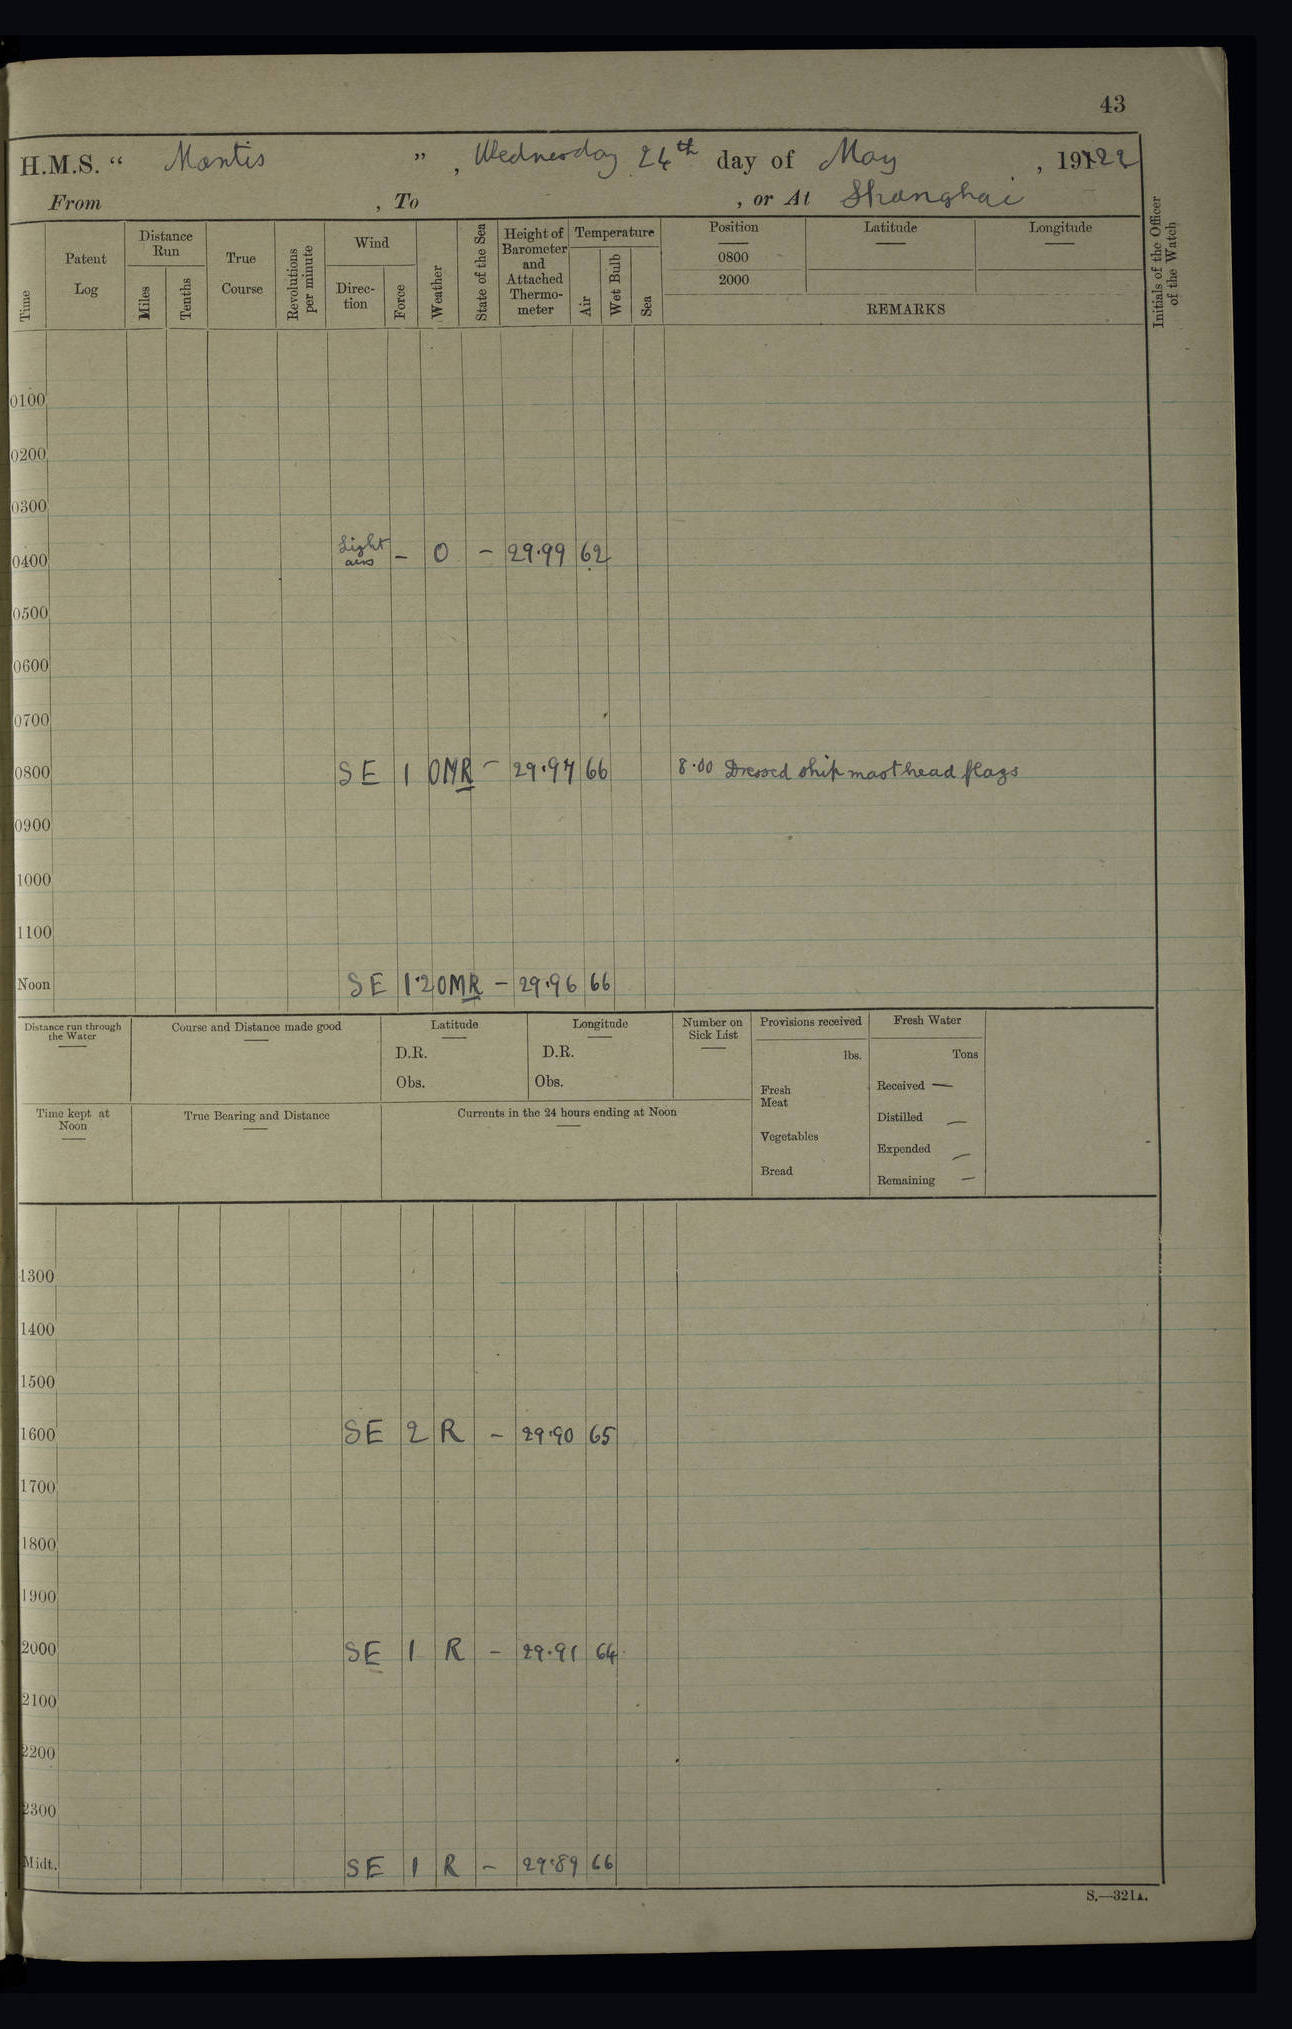 43
H.M.S. “ Mantis ” , Wednesday 24th day of May , 1922
From , To , or At Shanghai
Time
Patent Log
Distance Run
Miles
Tenths
True Course
Revolutions per minute
Wind
Direc- tion
Force
Weather
State of the Sea
Height of Barometer and Attached Thermo- meter
Temperature
Air
Wet Bulb
Sea
Position
0800
2000
Latitude
Longitude
REMARKS
Initials of the Officer of the Watch
0100
0200
0300
0400 Light airs – O – 29.99 62
0500
0600
0700
0800 SE 1 OMR – 29.97 66 8.00 Dressed ship masthead flags
0900
1000
1100
Noon SE 1.2 OMR – 29.96 66
Distance run through the Water
Course and Distance made good
Latitude
D.R.
Obs.
Longitude
D.R.
Obs.
Number on Sick List
Provisions received
lbs.
Fresh Meat
Vegetables
Bread
Fresh Water
Tons
Received —
Distilled —
Expended —
Remaining —
Time kept at Noon
True Bearing and Distance
Currents in the 24 hours ending at Noon
1300
1400
1500
1600 SE 2 R – 29.90 65
1700
1800
1900
2000 SE 1 R – 29.91 64
2100
2200
2300
Midt. SE 1 R – 29.89 66
S.—321A.